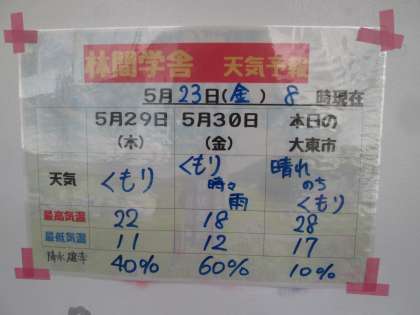 林間学舎 天気予報
5月23日(金) 8時現在
5月29日(木) 5月30日(金) 本日の大東市
天気 くもり くもり時々雨 晴れのちくもり
最高気温 22 18 28
最低気温 11 12 17
降水確率 40% 60% 10%